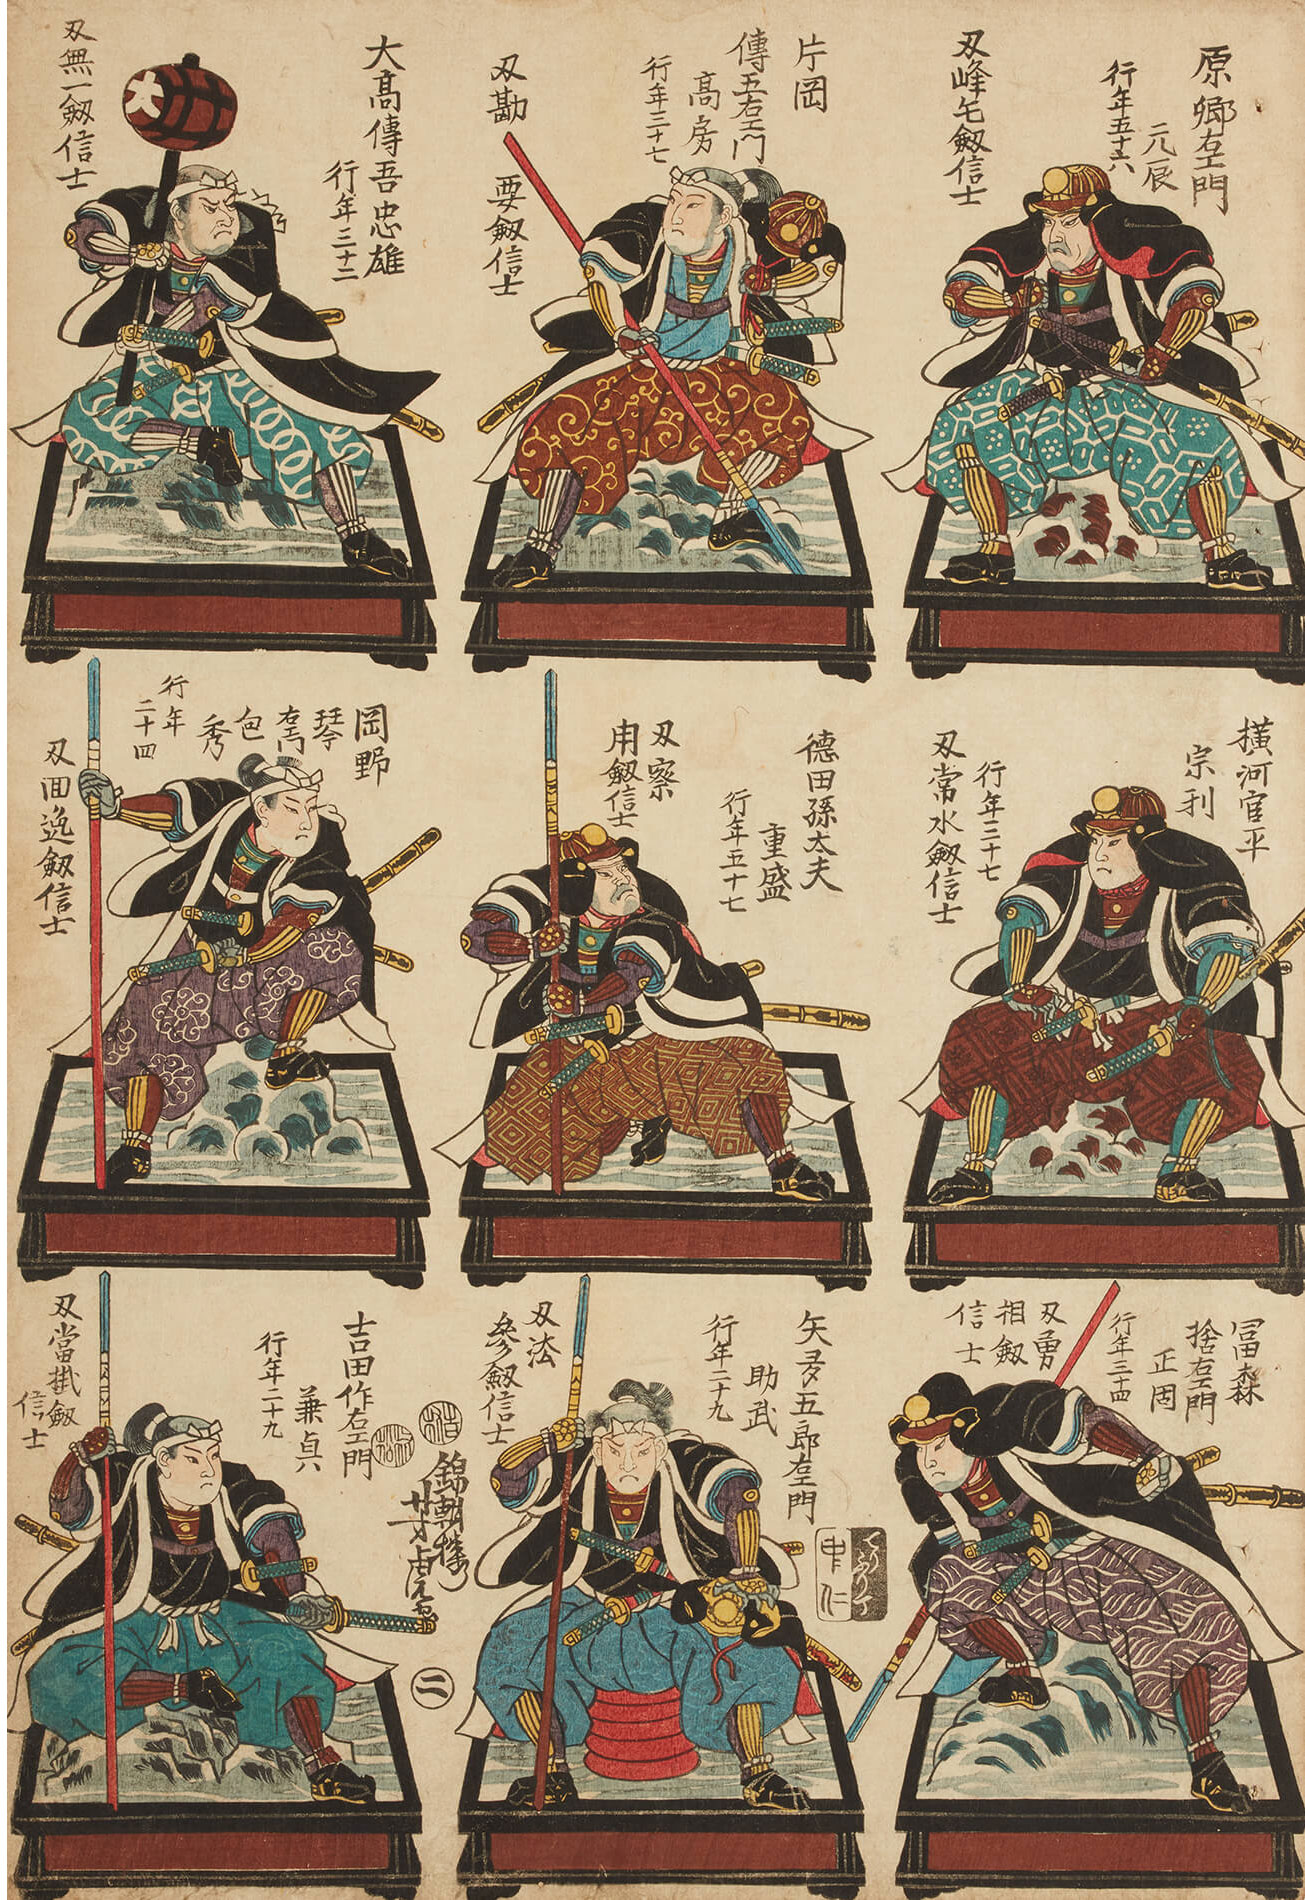 原郷右エ門
元辰
行年五十六
刃峰毛劔信士
片岡
傳五右エ門
高房
行年三十七
刃勘
要劔信士
大髙傳吾忠雄
行年三十二
刃無一劔信士
横河官平
宗利
行年三十七
刃常水劔信士
德田孫太夫
重盛
行年五十七
刃察
用劔信士
岡野
琴右エ門
包
秀
行年
二十四
刃回逸劔信士
冨森
捨右エ門
正固
行年三十四
刃勇
相劔
信士
矢多五郎右エ門
助武
行年二十九
刃法
參劔信士
吉田作右エ門
兼貞
行年二十九
刃當掛劔
信士
錦朝樓
芳虎画
二